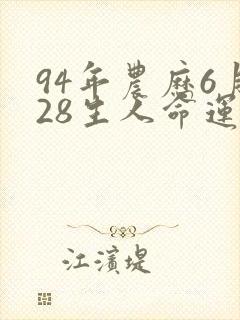 94年農曆6月
28生人命運
江濱堤